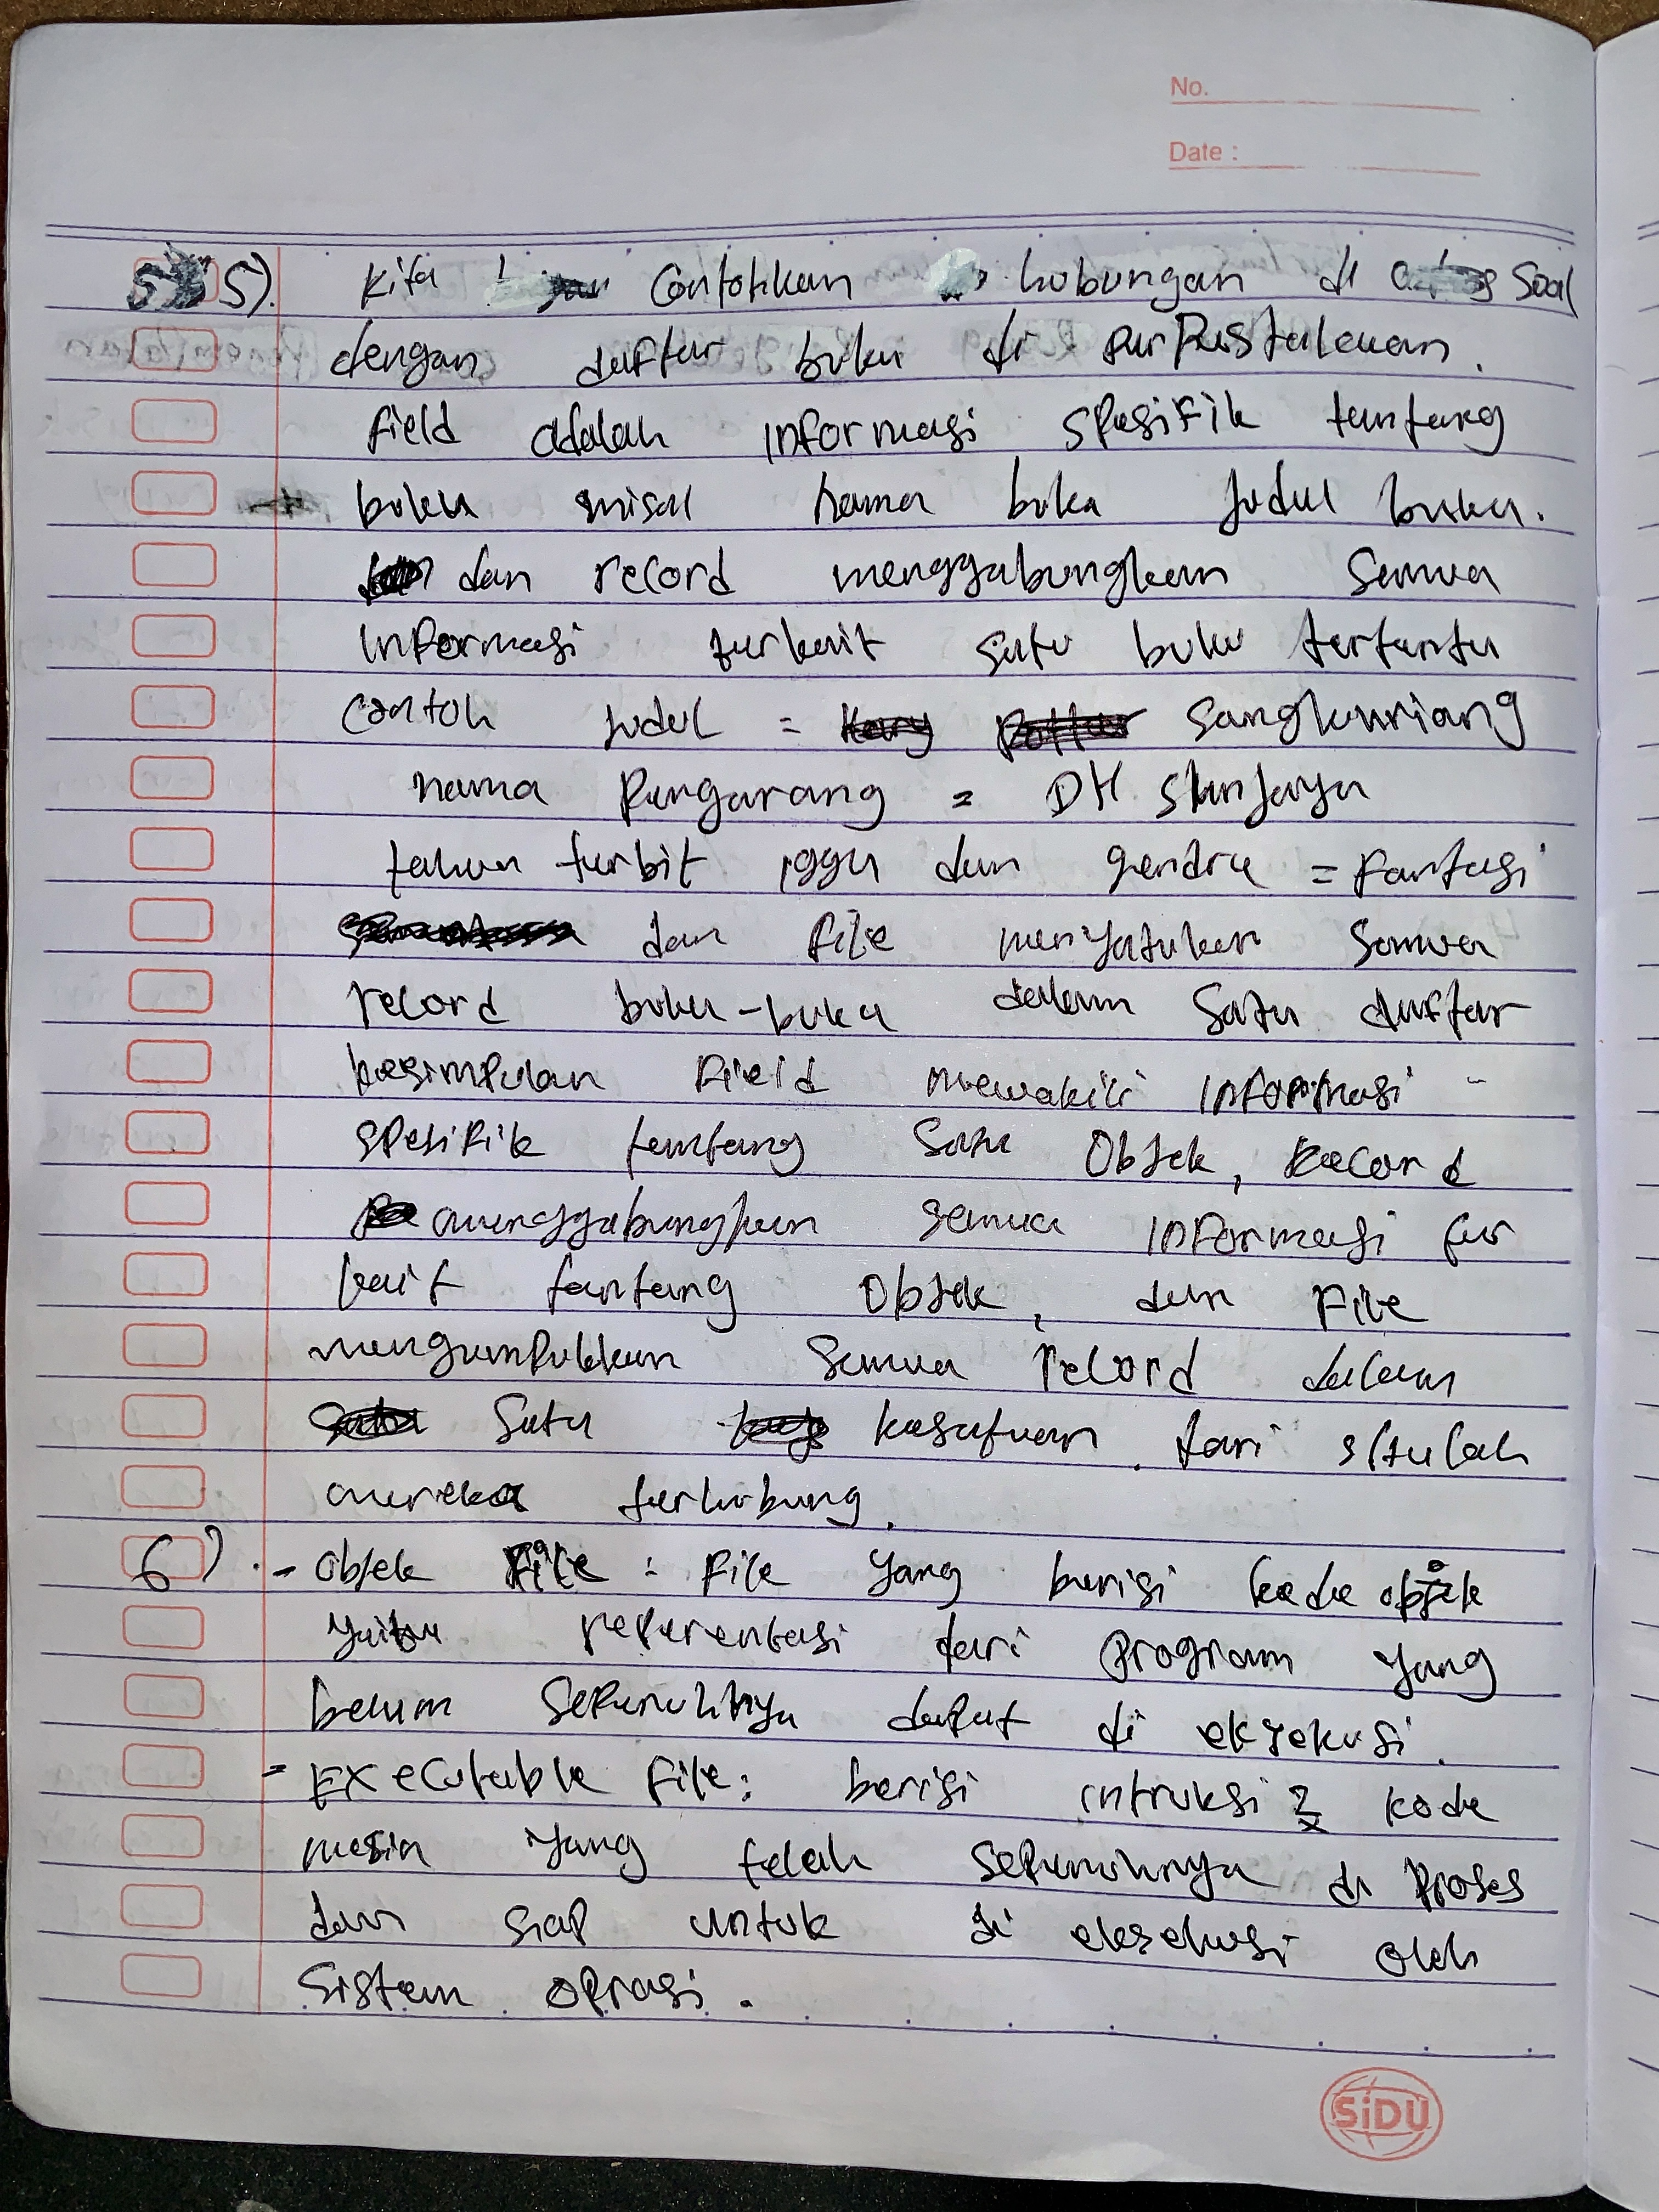 No.
Date :
5) Kita contohkan hubungan di soal
dengan daftar buku di perpustakaan.
field adalah informasi spesifik tentang
buku misal nama buku judul buku.
dan record menggabungkan semua
informasi terkait satu buku tertentu
contoh judul = Sangkuriang
nama pengarang =
tahun terbit dan gendre = fantasi
dan file menyatukan semua
record buku-buku dalam satu daftar
kesimpulan field mewakili informasi
spesifik tentang satu objek, record
menggabungkan semua informasi ter
kait tentang objek, dan file
mengumpulkkan semua record dalam
satu kesatuan. dari situlah
mereka terhubung.
6) - objek file : file yang berisi kode objek
yaitu reperentasi dari program yang
belum sepenuhnya dapat di eksekusi.
- Executable file : berisi intruksi2 kode
mesin yang telah sepenuhnya di proses
dan siap untuk di eksekusi oleh
sistem oprasi.
SiDU